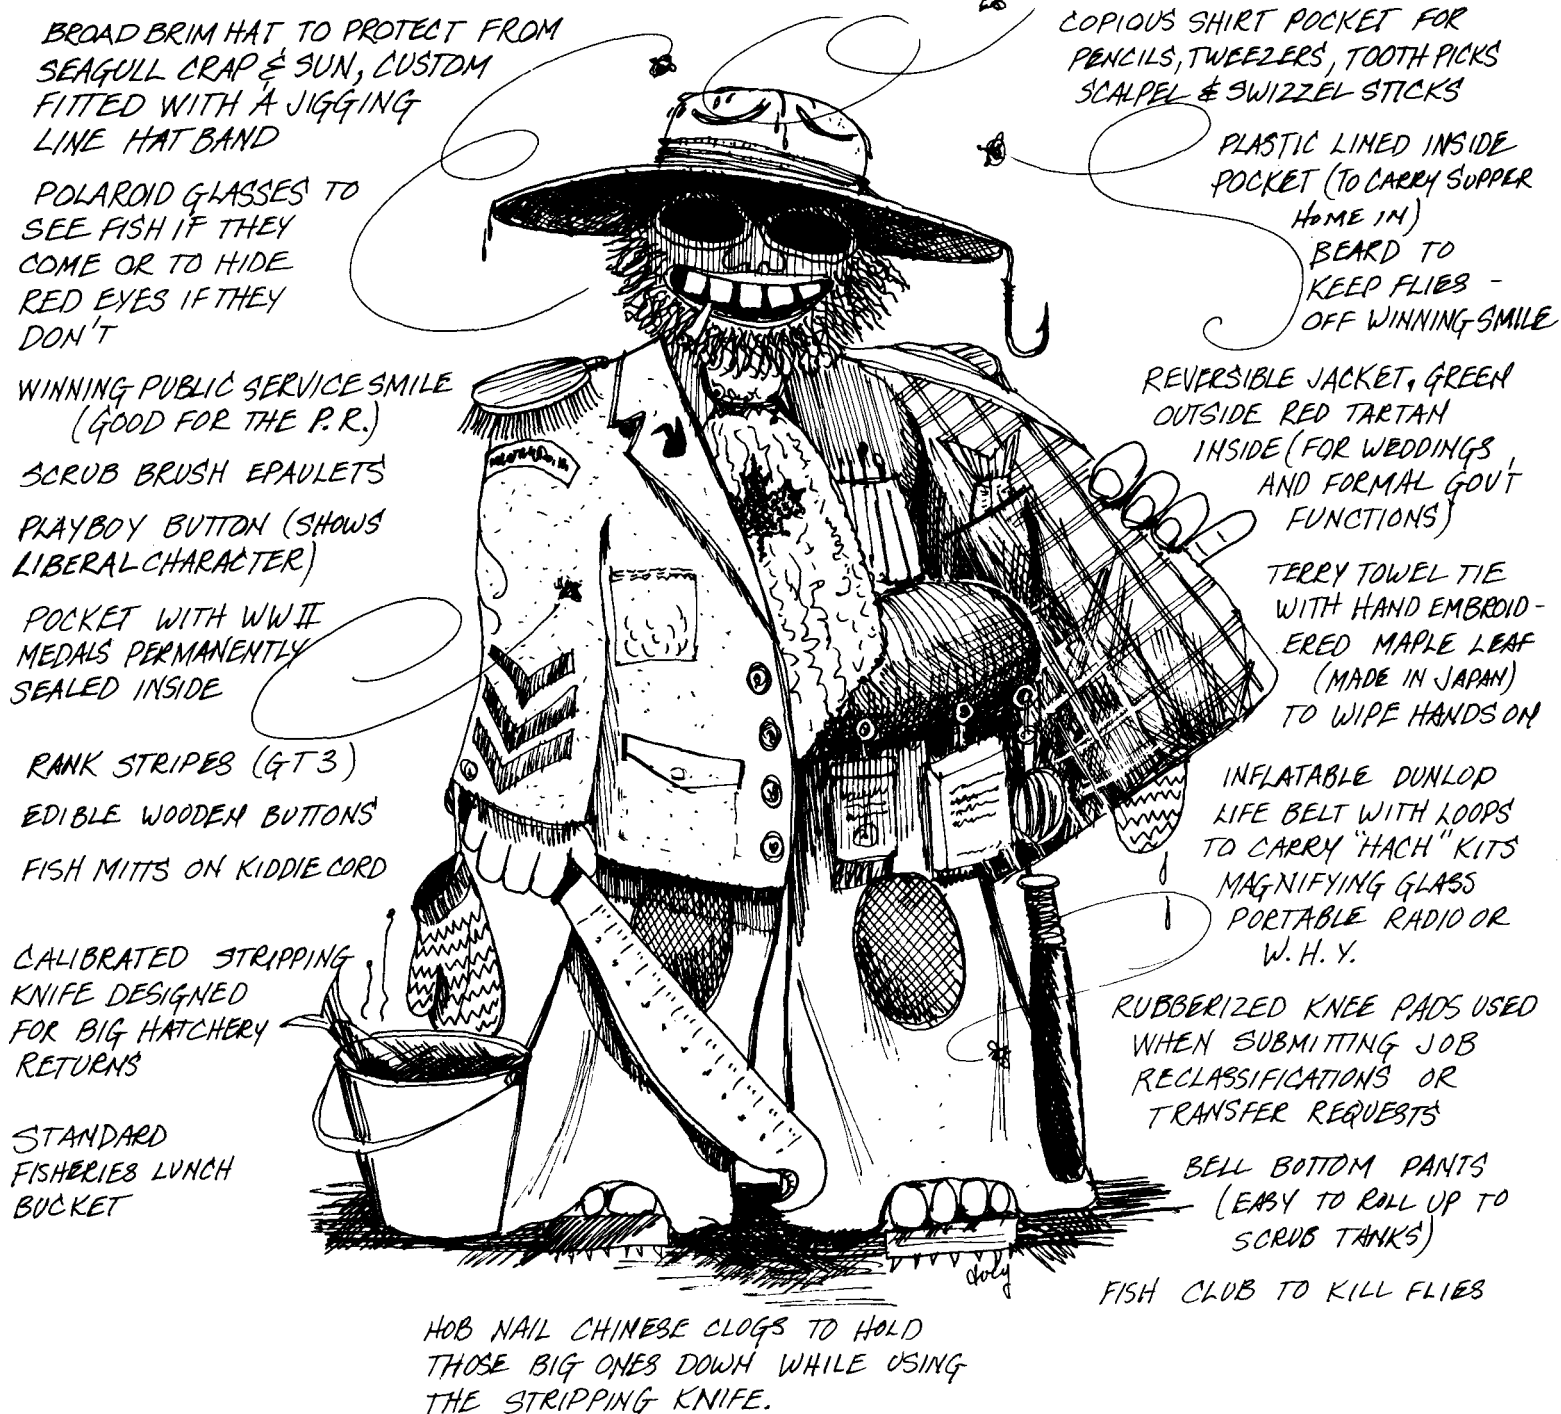 BROAD BRIM HAT TO PROTECT FROM
SEAGULL CRAP & SUN, CUSTOM
FITTED WITH A JIGGING
LINE HAT BAND
POLAROID GLASSES TO
SEE FISH IF THEY
COME OR TO HIDE
RED EYES IF THEY
DON'T
WINNING PUBLIC SERVICE SMILE
(GOOD FOR THE P.R.)
SCRUB BRUSH EPAULETS
PLAYBOY BUTTON (SHOWS
LIBERAL CHARACTER)
POCKET WITH WW II
MEDALS PERMANENTLY
SEALED INSIDE
RANK STRIPES (GT3)
EDIBLE WOODEN BUTTONS
FISH MITTS ON KIDDIE CORD
CALIBRATED STRIPPING
KNIFE DESIGNED
FOR BIG HATCHERY
RETURNS
STANDARD
FISHERIES LUNCH
BUCKET
COPIOUS SHIRT POCKET FOR
PENCILS, TWEEZERS, TOOTH PICKS
SCALPEL & SWIZZEL STICKS
PLASTIC LINED INSIDE
POCKET (TO CARRY SUPPER
HOME IN)
BEARD TO
KEEP FLIES -
OFF WINNING SMILE
REVERSIBLE JACKET, GREEN
OUTSIDE RED TARTAN
INSIDE (FOR WEDDINGS,
AND FORMAL GOV'T
FUNCTIONS)
TERRY TOWEL TIE
WITH HAND EMBROID-
ERED MAPLE LEAF
(MADE IN JAPAN)
TO WIPE HANDS ON
INFLATABLE DUNLOP
LIFE BELT WITH LOOPS
TO CARRY "HACH" KITS
MAGNIFYING GLASS
PORTABLE RADIO OR
W.H.Y.
RUBBERIZED KNEE PADS USED
WHEN SUBMITTING JOB
RECLASSIFICATIONS OR
TRANSFER REQUESTS
BELL BOTTOM PANTS
(EASY TO ROLL UP TO
SCRUB TANKS)
FISH CLUB TO KILL FLIES
HOB NAIL CHINESE CLOGS TO HOLD
THOSE BIG ONES DOWN WHILE USING
THE STRIPPING KNIFE.